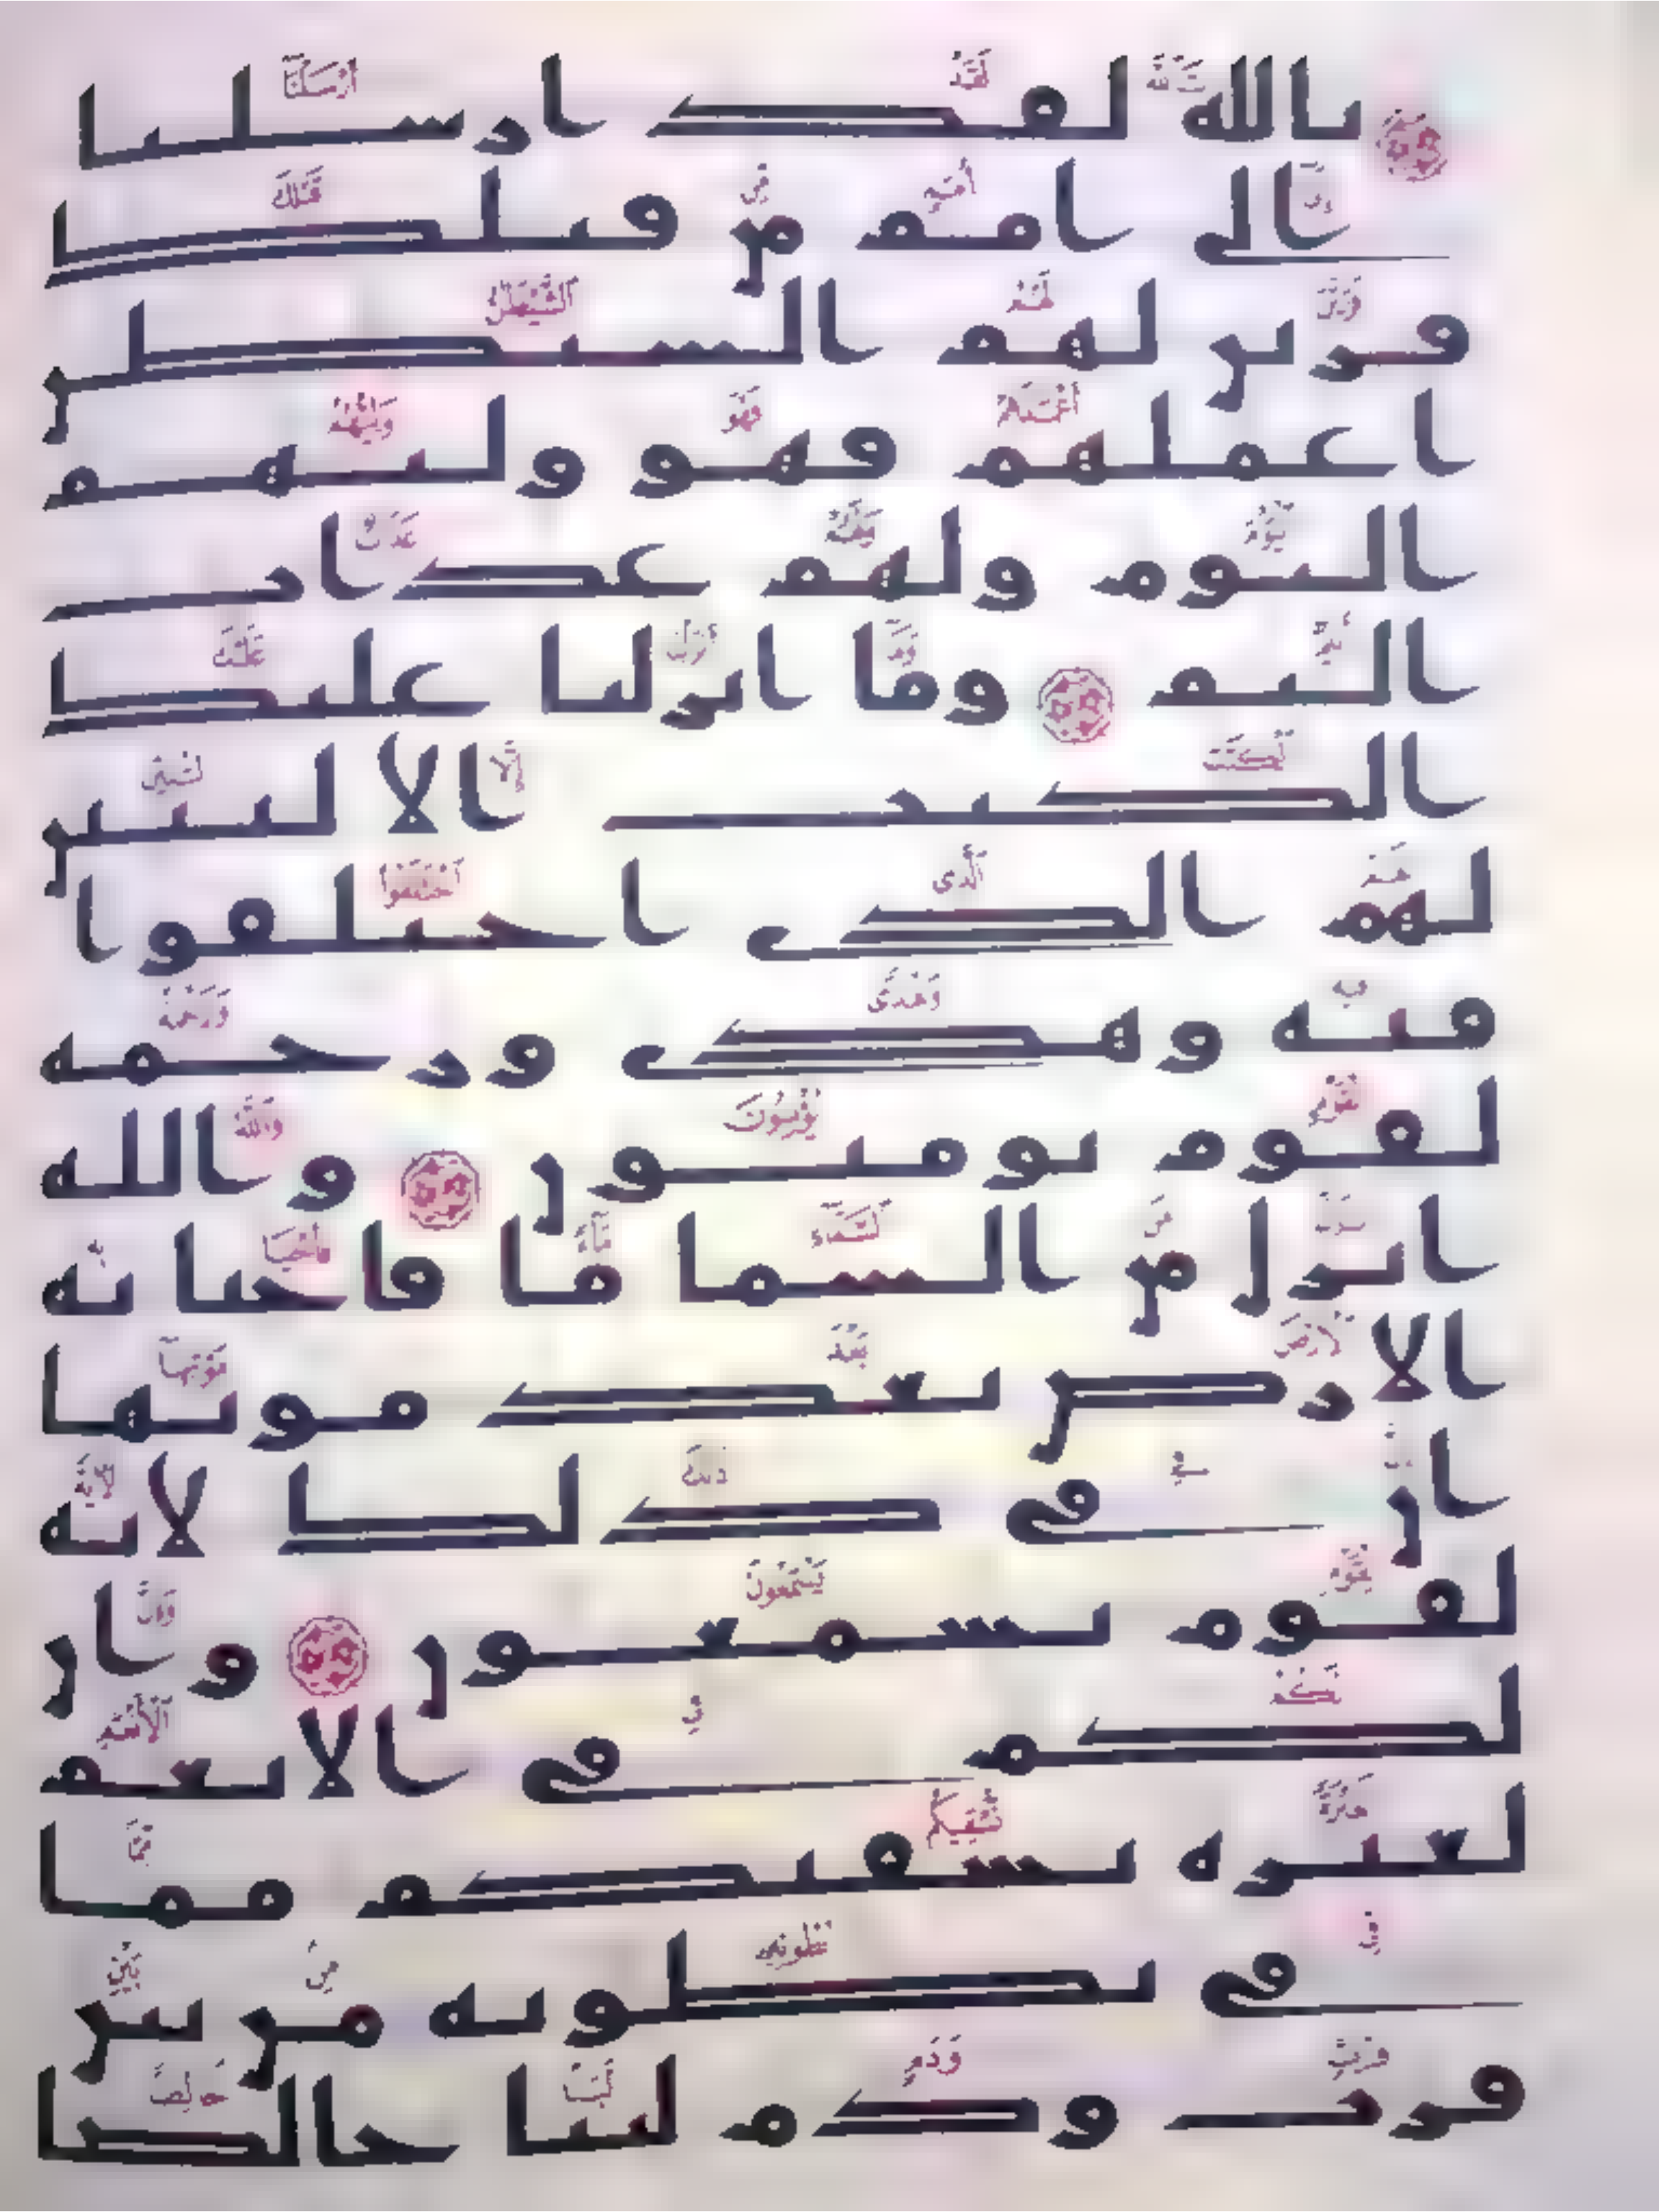 تالله لقد ارسلنا
الى امم من قبلك
فزين لهم الشيطن
اعملهم فهو وليهم
اليوم ولهم عذاب
اليم وما انزلنا عليك
الكتب الا لتبين
لهم الذى اختلفوا
فيه وهدى ورحمه
لقوم يومنون والله
انزل من السما ما فاحيا به
الارض بعد موتها
ان فى ذلك لايه
لقوم يسمعون وان
لكم فى الانعم
لعبره نسقيكم مما
فى بطونه من بين
فرث ودم لبنا خالصا